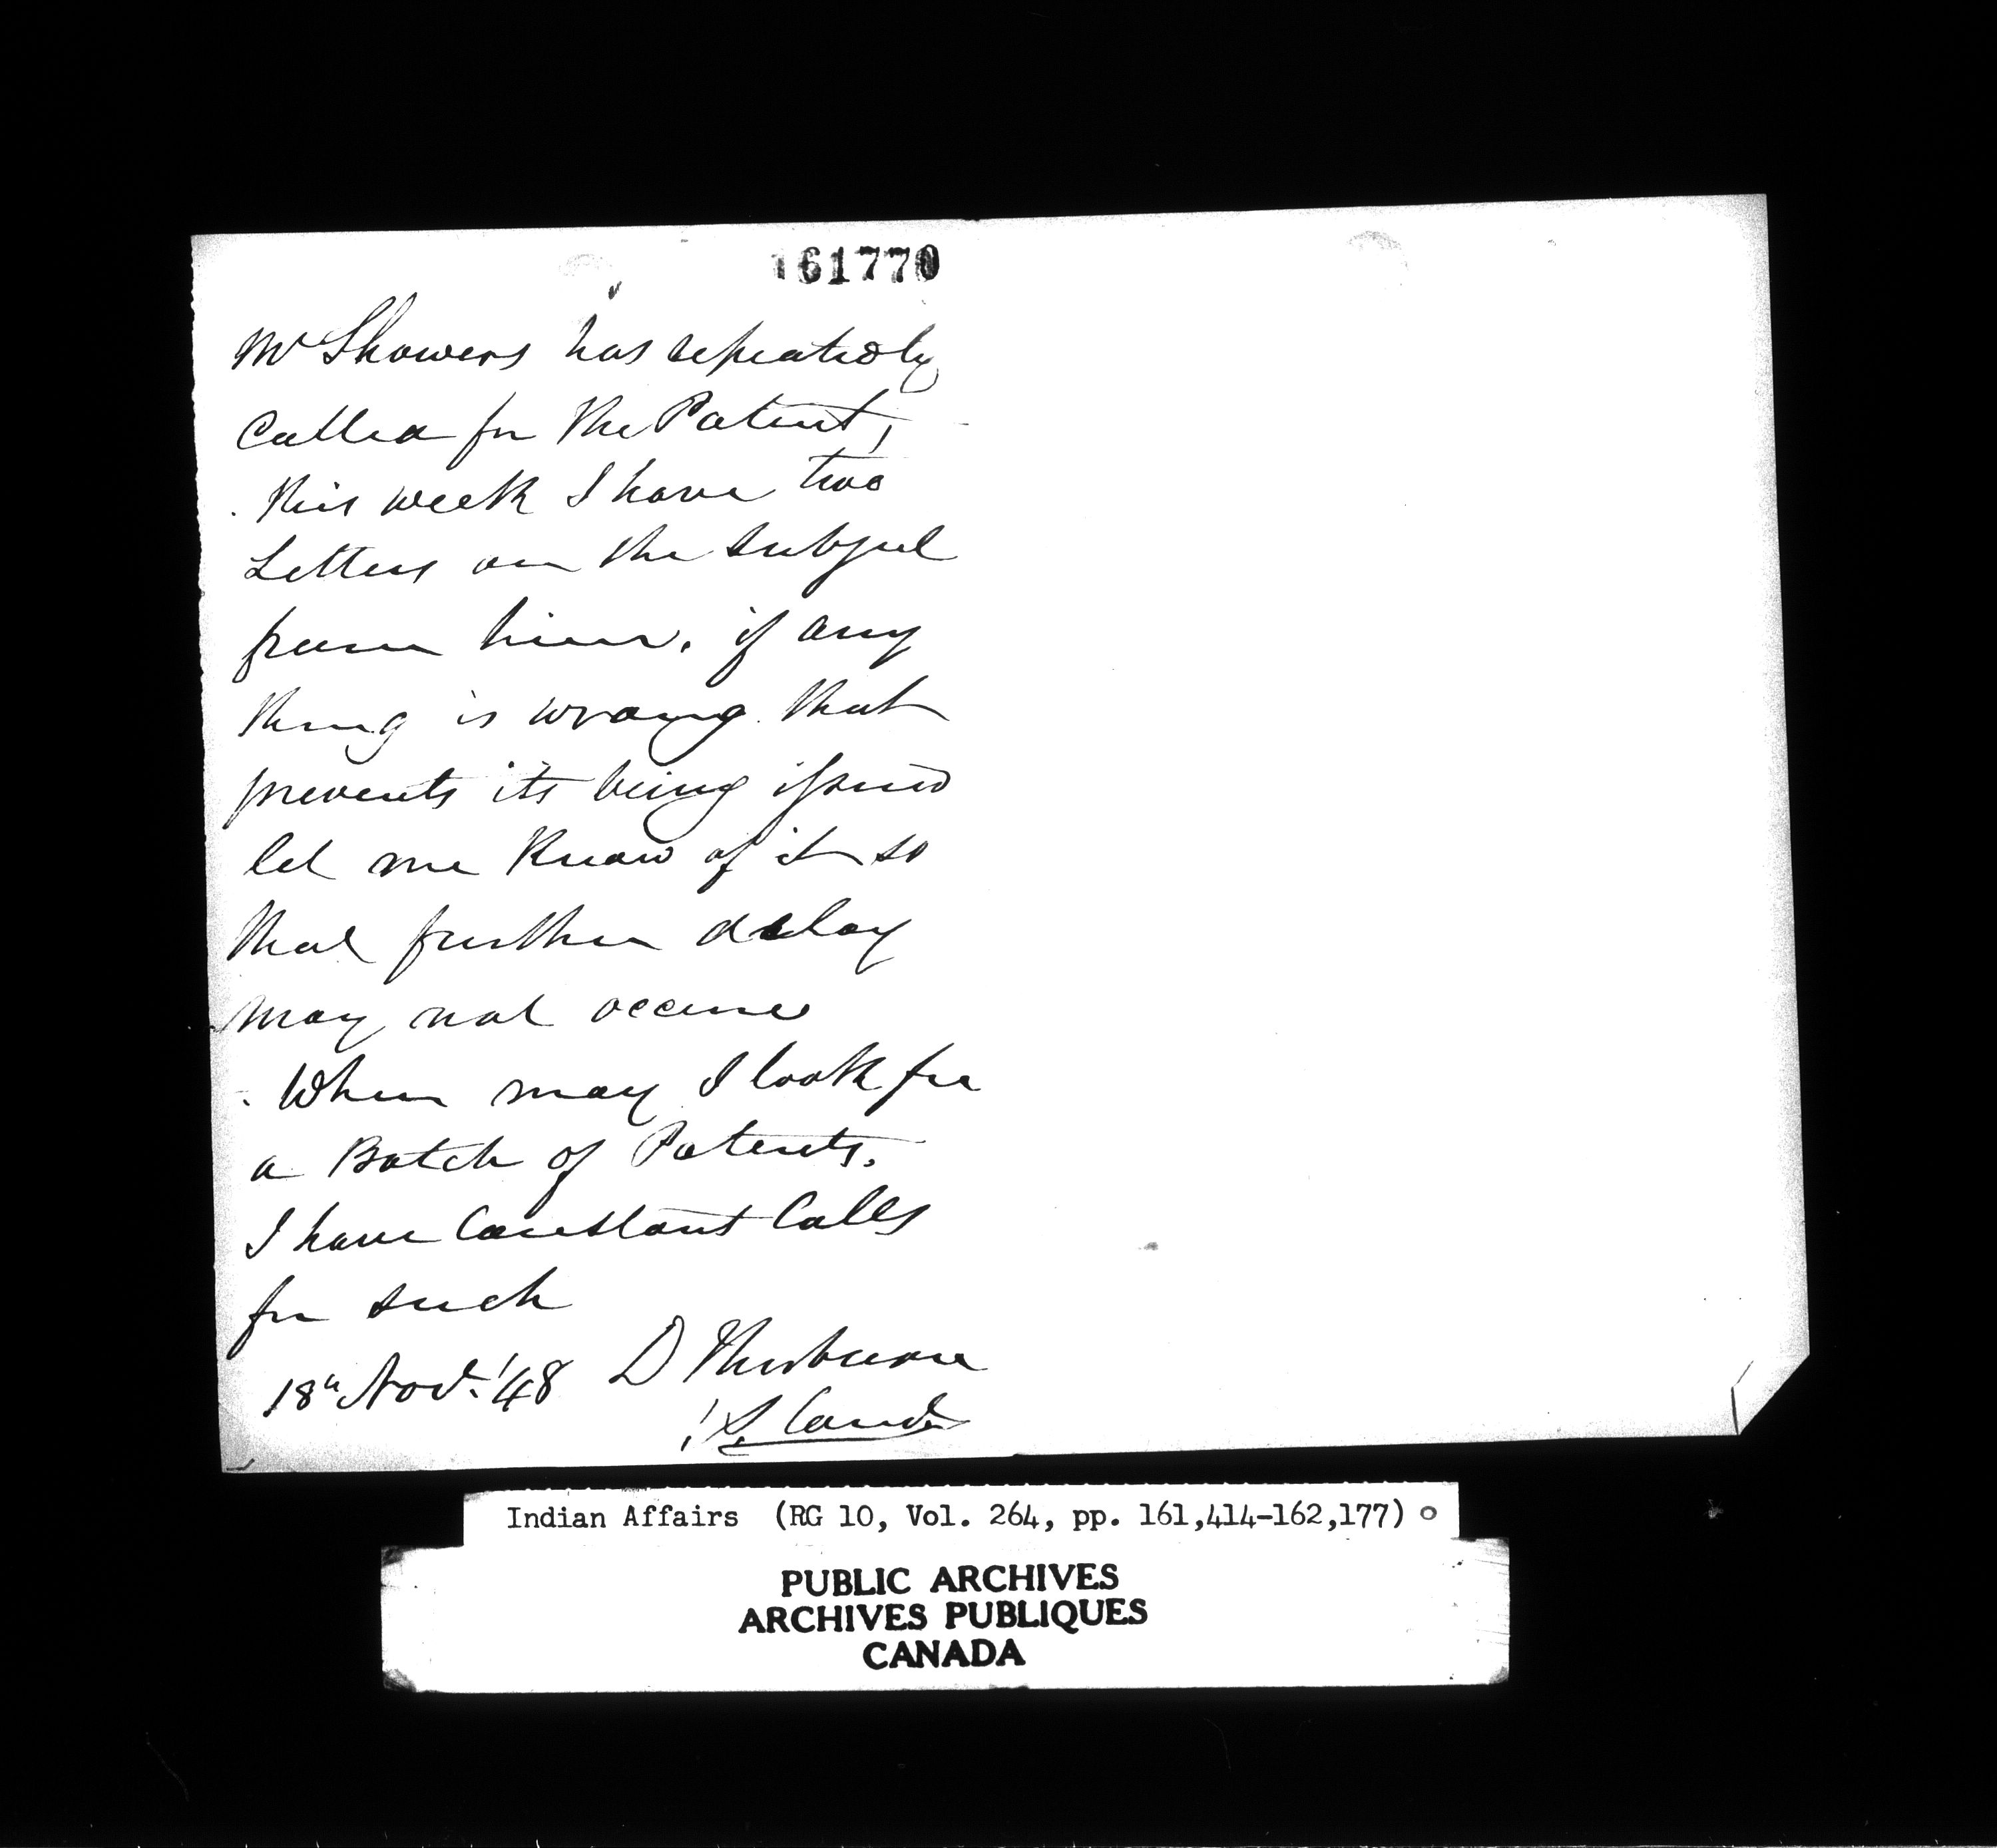 161770
Mr Showers has repeatedly
Called for the Patent,
this week I have two
Letters on the subject
from him. if any
thing is wrong that
prevents its being issued
let me Know of it so
that further delay
may not occur
When may I look for
a Batch of Patents.
I have Constant Calls
for such
18th Novr. '48 D Thorburn
Indian Affairs (RG 10, Vol. 264, pp. 161,414-162,177)
PUBLIC ARCHIVES
ARCHIVES PUBLIQUES
CANADA